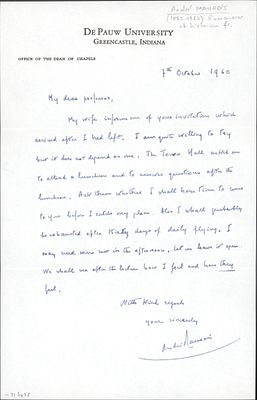 André MAUROIS
(1885-1967) Romancier
et historien fr.
DE PAUW UNIVERSITY
GREENCASTLE, INDIANA
OFFICE OF THE DEAN OF CHAPELS
7th October 1960
My dear professor,
My wife informs me of your invitation which
arrived after I had left. I am quite willing to try
but it does not depend on me. The Town Hall asked me
to attend a luncheon and to answer questions after the
luncheon. Ask them whether I shall have time to come
to you before I catch my plane. Also I shall probably
be exhausted after thirty days of daily flying. I
may need some rest in the afternoon. Let us leave it open.
We shall see after the lecture how I feel and how they
feel.
With kind regards
yours sincerely
André Maurois